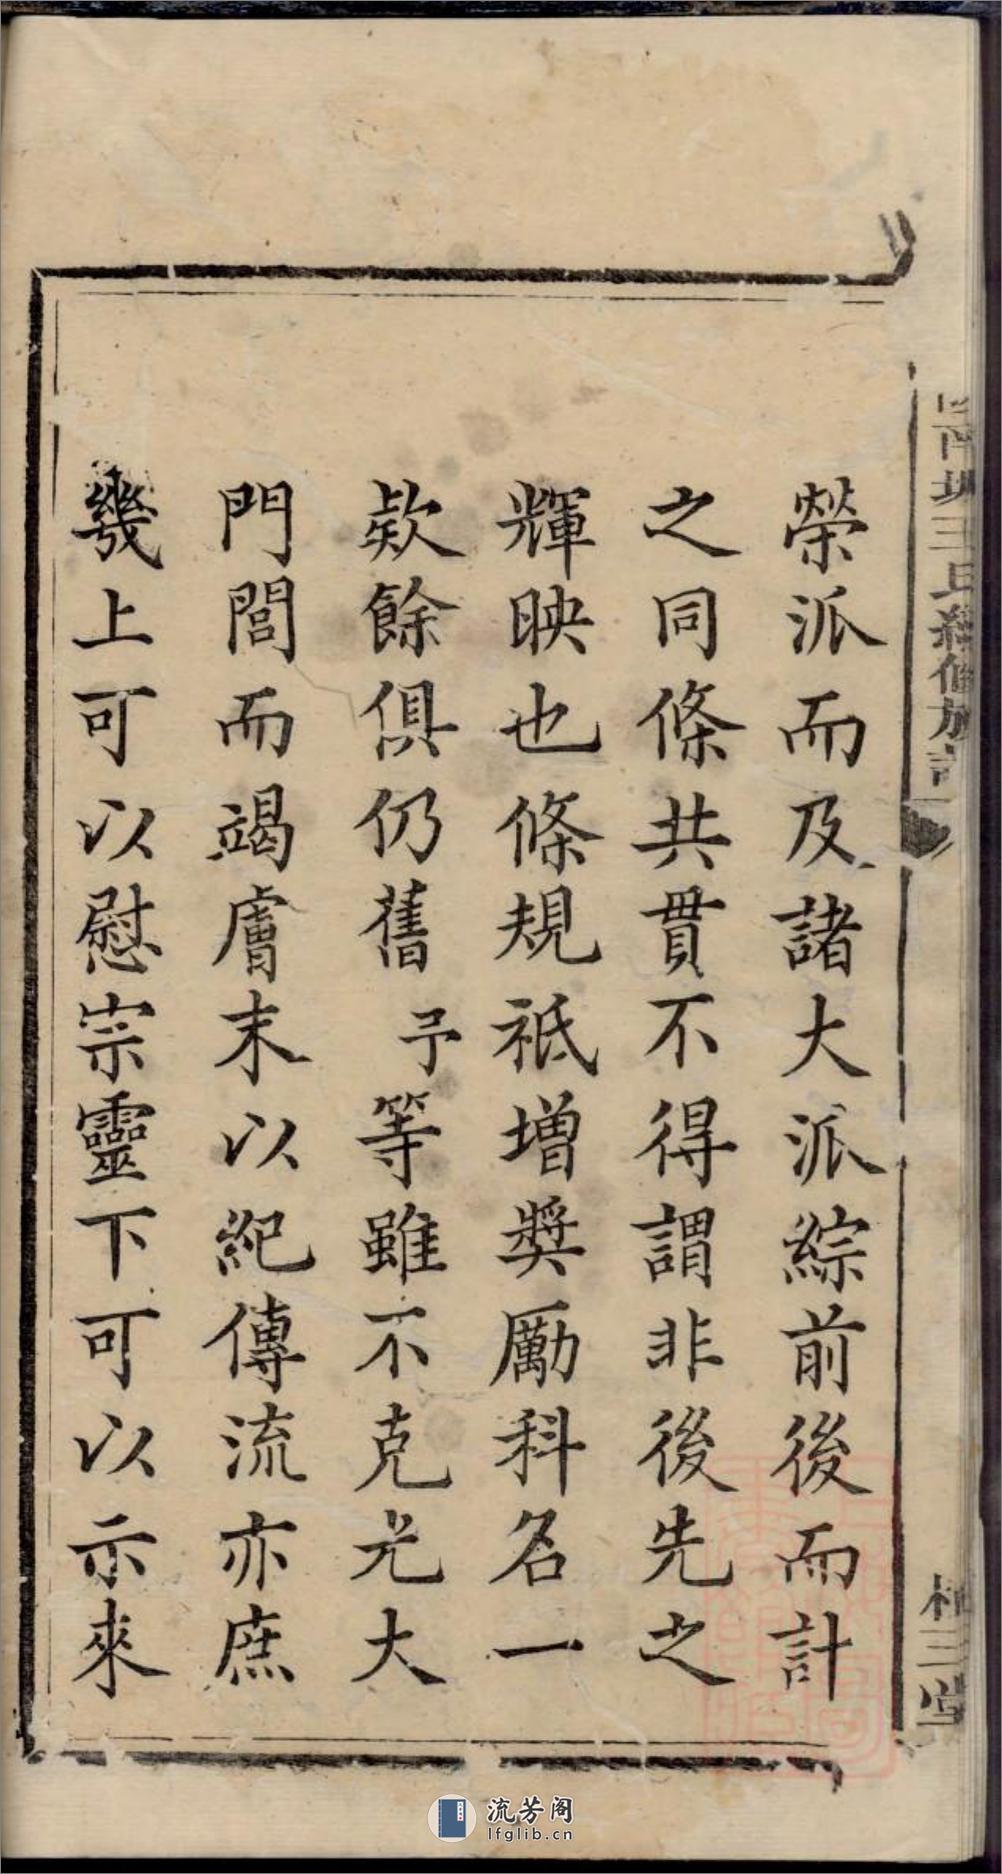 榮派而及諸大派綜前後而計
之同條共貫不得謂非後先之
輝映也條規祗增獎厲科名一
欵餘俱仍舊予等雖不克光大
門閭而竭膚末以紀傳流亦庶
幾上可以慰宗靈下可以示來
三
修族
三堂
流芳阁
lfglib.cn